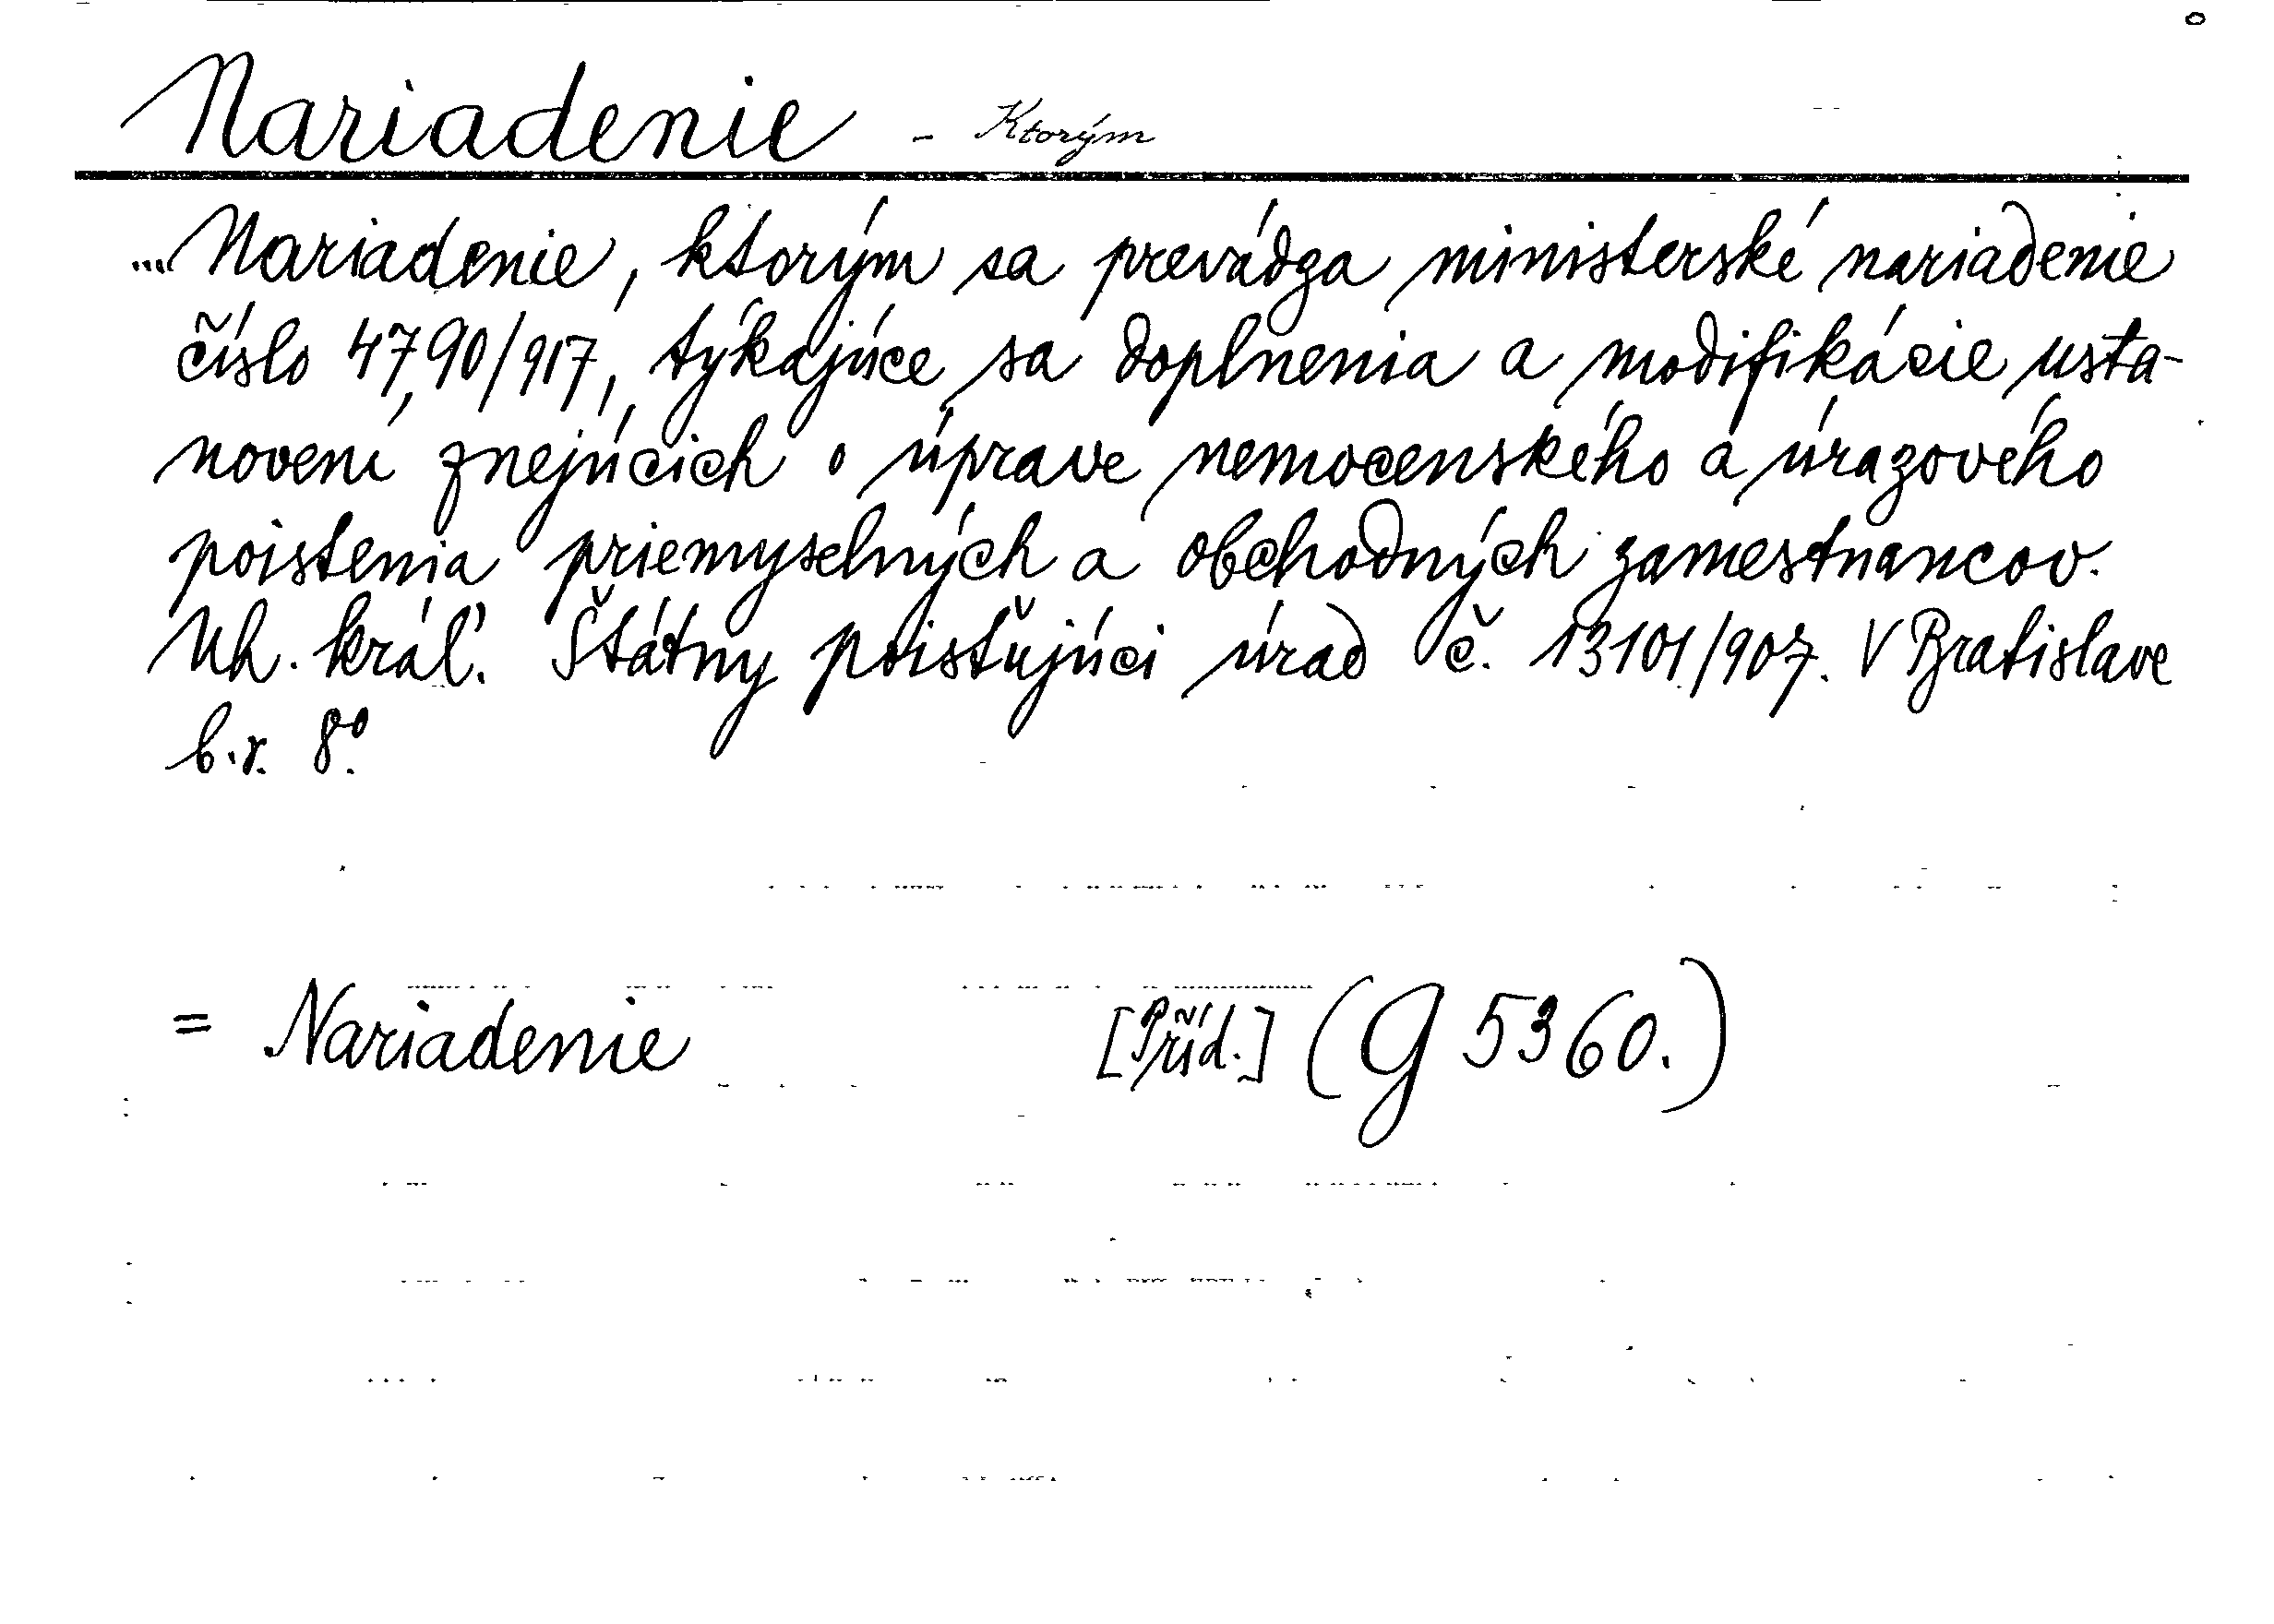 Nariadenie - Ktorým
... Nariadenie, ktorým sa prevádza ministerské nariadenie
číslo 4790/917, týkajúce sa doplnenia a modifikácie usta-
novení znejúcich o úprave nemocenského a úrazového
poistenia priemyselných a obchodných zamestnancov.
Uh. kráľ. Štátny poisťujúci úrad č. 13101/907. V Bratislave
b.r. 8°.
= Nariadenie [Příd.] (G 5360.)